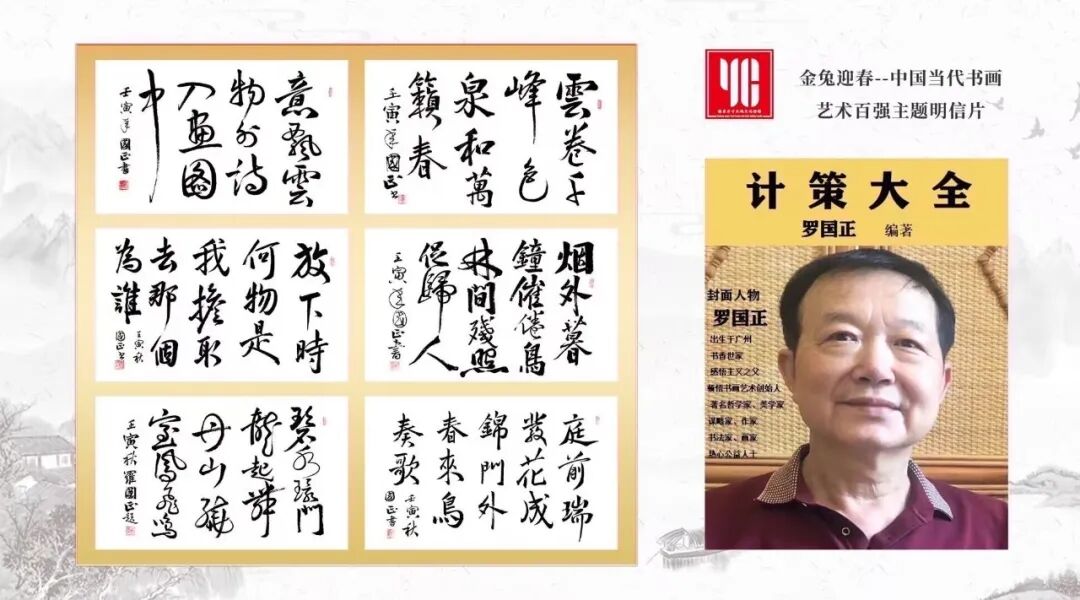 意飄雲
物外詩
入畫圖
中
壬寅年國正書
雲卷千
峰色
泉和萬
籟春
壬寅年國正書
放下時
何物是
我擔取
去那個
為誰
壬寅秋
國正書
烟外暮
鐘催倦鳥
林間殘照
促歸人
壬寅年國正書
碧水環門
龍起舞
丹山繞
室鳳飛鳴
壬寅秋羅國正題
庭前瑞
發花成
錦門外
春來鳥
奏歌
壬寅秋
國正書
金兔迎春--中国当代书画
艺术百强主题明信片
计策大全
罗国正 编著
封面人物
罗国正
出生于广州
书香世家
感悟主义之父
畅情书画艺术创始人
著名哲学家、美学家
谋略家、作家
书法家、画家
热心公益人士